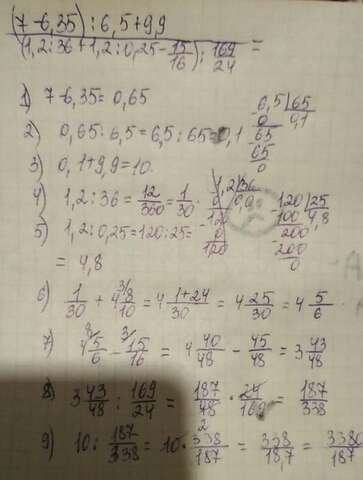 (7-6,35):6,5+9,9
(1,2:36+1,2:0,25-15/16):169/24 =
1) 7-6,35=0,65
2) 0,65:6,5=6,5:65=0,1
6,5|65
0 0,1
65
65
0
3) 0,1+9,9=10.
4) 1,2:36=12/360=1/30.
1,2|36
0 0,0
120
0
120
5) 1,2:0,25=120:25=
= 4,8
120|25
100 4,8
200
200
0
6) 1/30+4 8/10=4 1+24/30=4 25/30=4 5/6
7) 4 5/6-15/16=4 40/48-45/48=3 43/48
8) 3 43/48:169/24=187/48·24/169=187/338
9) 10:187/338=10·338/187=338/18,7=3380/187